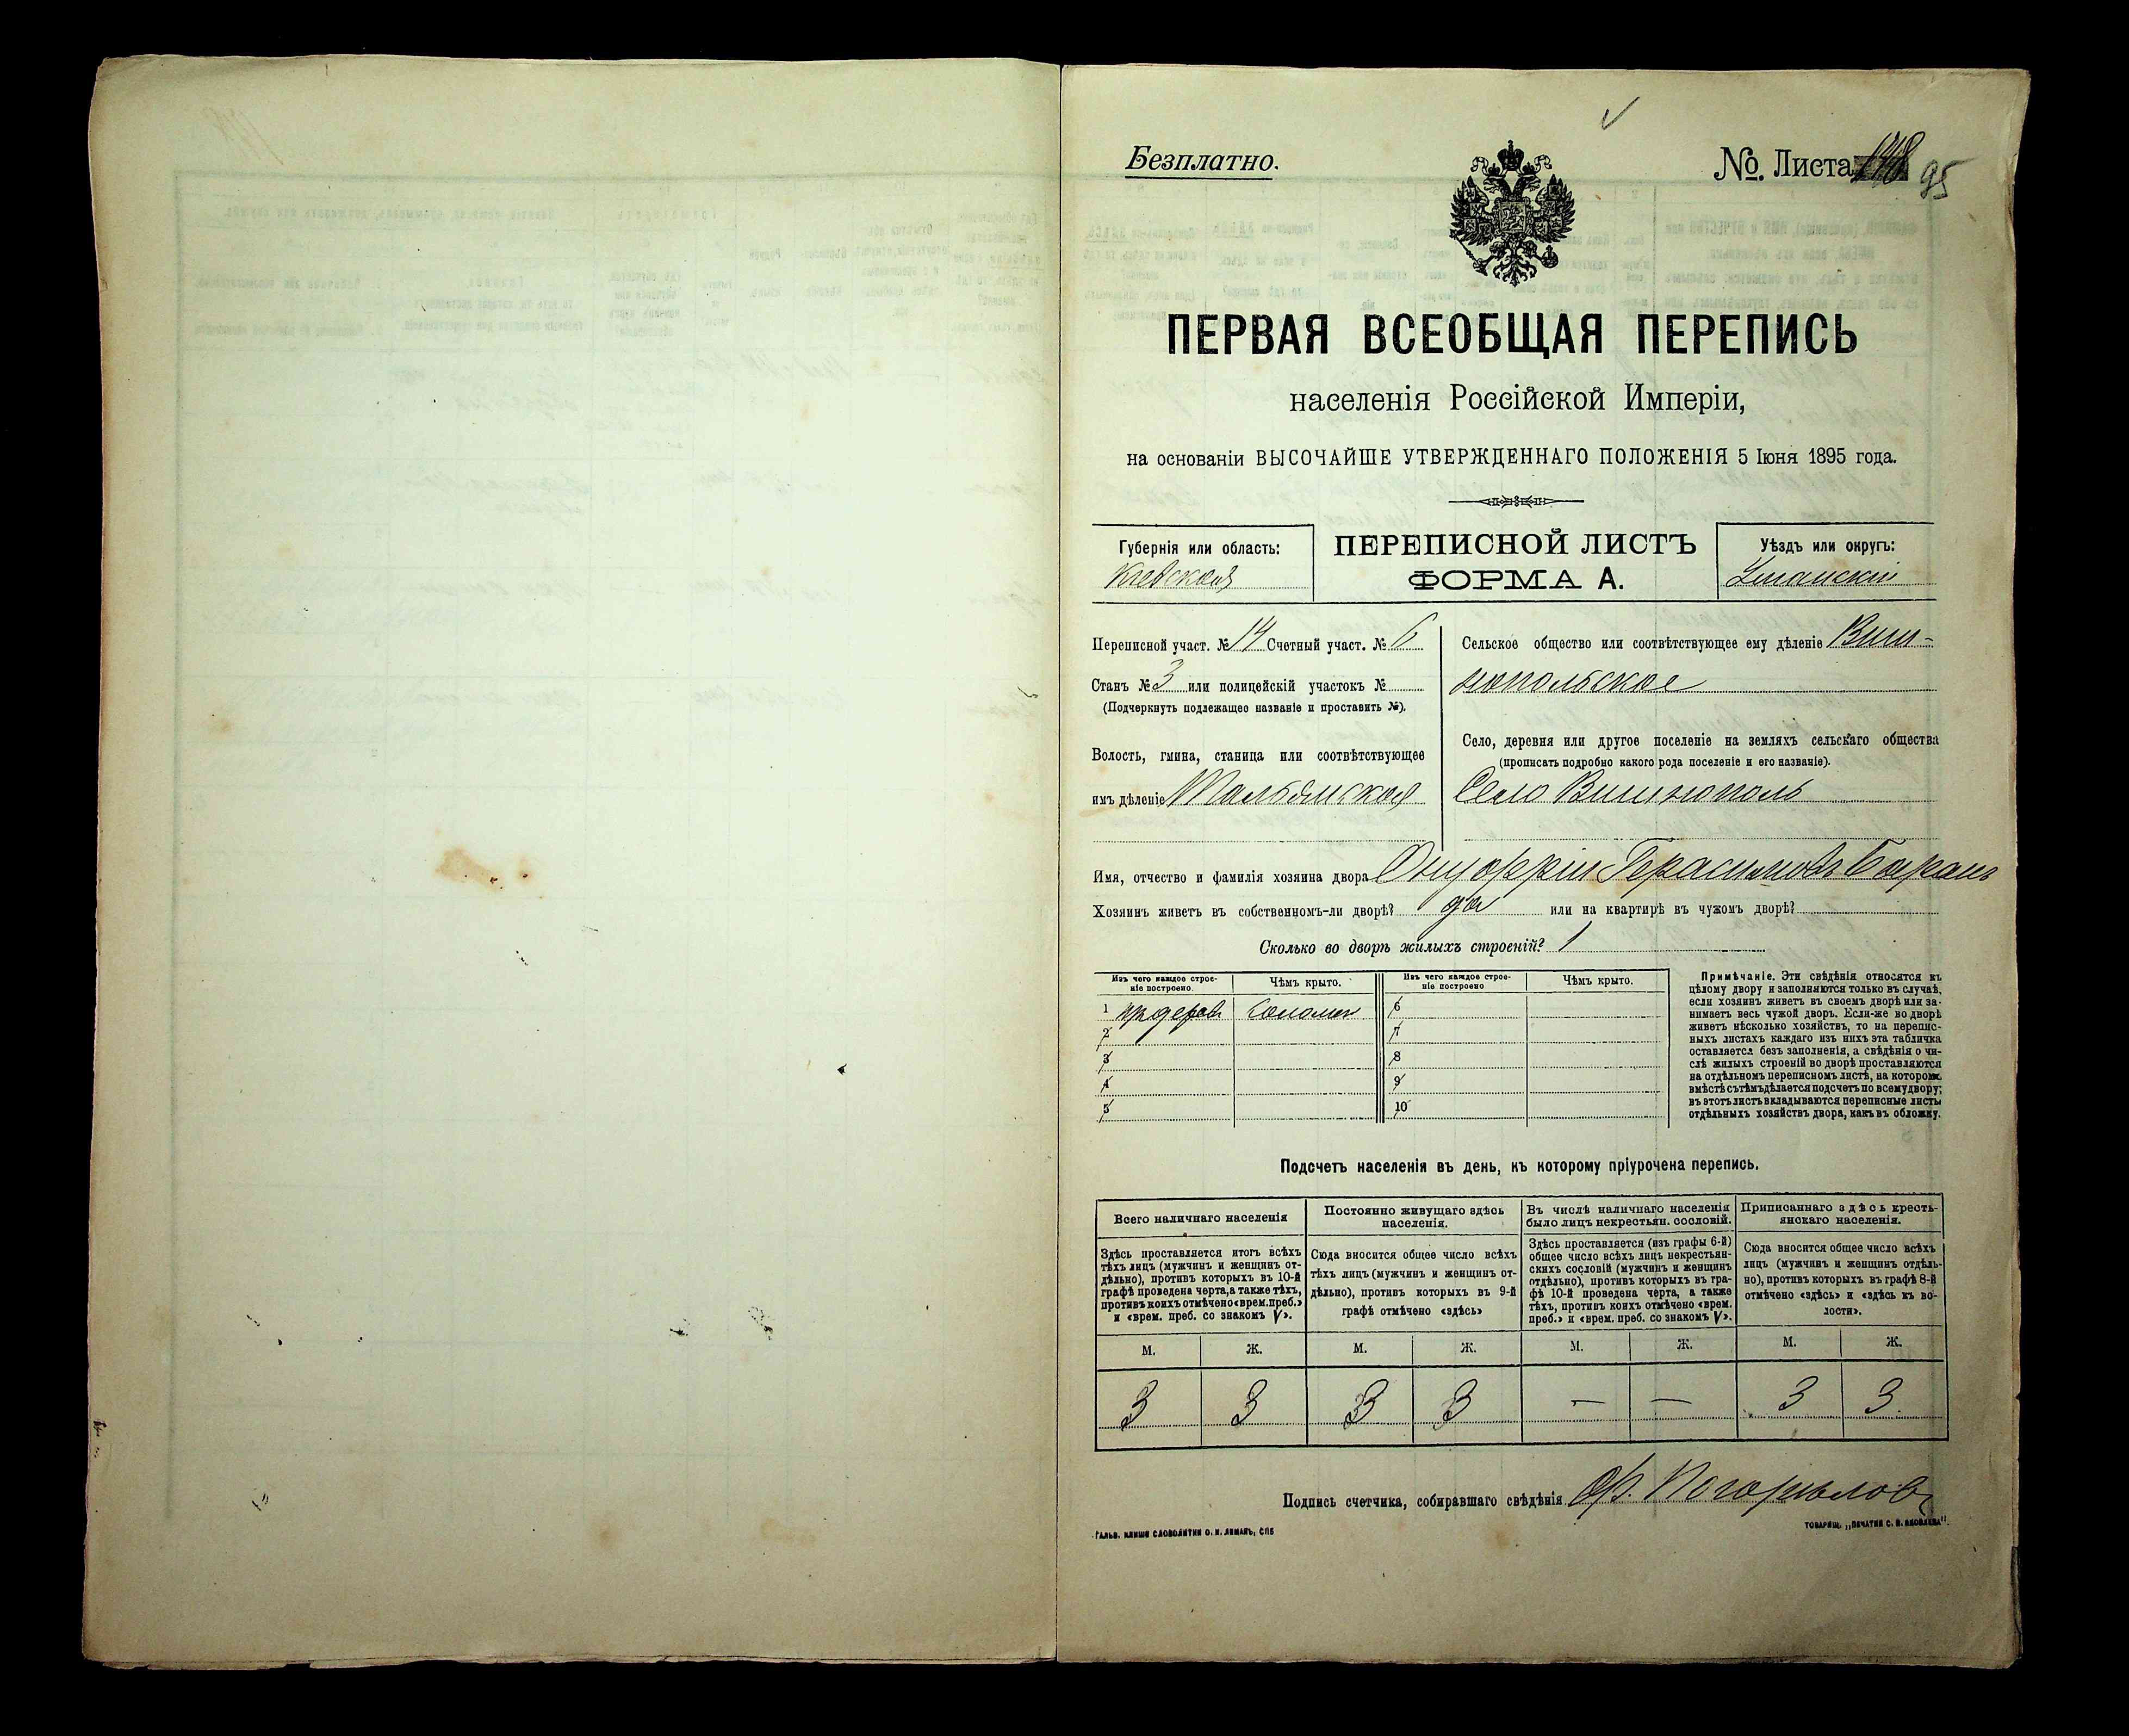 Безплатно.
№ Листа 148 95
ПЕРВАЯ ВСЕОБЩАЯ ПЕРЕПИСЬ
населенія Россійской Имперіи,
на основаніи ВЫСОЧАЙШЕ УТВЕРЖДЕННАГО ПОЛОЖЕНІЯ 5 Іюня 1895 года.
Губернія или область:
Кіевская
ПЕРЕПИСНОЙ ЛИСТЪ
ФОРМА А.
Уѣздъ или округъ:
Уманскій
Переписной участ. № 14 Счетный участ. № 6
Станъ № 3 или полицейскій участокъ №
(Подчеркнуть подлежащее названіе и проставить №).
Волость, гмина, станица или соотвѣтствующее
имъ дѣленіе Тальянская
Сельское общество или соотвѣтствующее ему дѣленіе Виш-
нопольское
Село, деревня или другое поселеніе на земляхъ сельскаго общества
(прописать подробно какого рода поселеніе и его названіе).
Село Вишнополь
Имя, отчество и фамилія хозяина двора Онуфрій Герасимовъ Баранъ
Хозяинъ живетъ въ собственномъ-ли дворѣ? да или на квартирѣ въ чужомъ дворѣ?
Сколько во дворѣ жилыхъ строеній? 1
Изъ чего каждое строе-
ніе построено.
Чѣмъ крыто.
Изъ чего каждое строе-
ніе построено
Чѣмъ крыто.
1 Солом 6
2 7
3 8
4 9
5 10
Примѣчаніе. Эти свѣдѣнія относятся къ
цѣлому двору и заполняются только въ случаѣ,
если хозяинъ живетъ въ своемъ дворѣ или за-
нимаетъ весь чужой дворъ. Если-же во дворѣ
живетъ нѣсколько хозяйствъ, то на перепис-
ныхъ листахъ каждаго изъ нихъ эта табличка
оставляется безъ заполненія, а свѣдѣнія о чи-
слѣ жилыхъ строеній во дворѣ проставляются
на отдѣльномъ переписномъ листѣ, на которомъ
вмѣстѣ съ тѣмъ дѣлается подсчетъ по всему двору;
въ этотъ листъ вкладываются переписные листы
отдѣльныхъ хозяйствъ двора, какъ въ обложку.
Подсчетъ населенія въ день, къ которому пріурочена перепись.
Всего наличнаго населенія
Здѣсь проставляется итогъ всѣхъ
тѣхъ лицъ (мужчинъ и женщинъ от-
дѣльно), противъ которыхъ въ 10-й
графѣ проведена черта, а также тѣхъ,
противъ коихъ отмѣчено «врем. преб.»
и «врем. преб. со знакомъ V».
Постоянно живущаго здѣсь
населенія.
Сюда вносится общее число всѣхъ
тѣхъ лицъ (мужчинъ и женщинъ от-
дѣльно), противъ которыхъ въ 9-й
графѣ отмѣчено «здѣсь»
Въ числѣ наличнаго населенія
было лицъ некрестьян. сословій.
Здѣсь проставляется (изъ графы 6-й)
общее число всѣхъ лицъ некрестьян-
скихъ сословій (мужчинъ и женщинъ
отдѣльно), противъ которыхъ въ гра-
фѣ 10-й проведена черта, а также
тѣхъ, противъ коихъ отмѣчено «врем.
преб.» и «врем. преб. со знакомъ V».
Приписаннаго здѣсь кресть-
янскаго населенія.
Сюда вносится общее число всѣхъ
лицъ (мужчинъ и женщинъ отдѣль-
но), противъ которыхъ въ графѣ 8-й
отмѣчено «здѣсь» и «здѣсь къ во-
лости».
М. Ж. М. Ж. М. Ж. М. Ж.
3 3 3 3 — — 3 3
Подпись счетчика, собиравшаго свѣдѣнія Ф. Погорѣловъ
ГАЛЬВ. КЛИШЕ СЛОВОЛИТНИ О. И. ЛЕМАНЪ, СПБ
ТОВАРИЩ. „ПЕЧАТНЯ С. П. ЯКОВЛЕВА“.